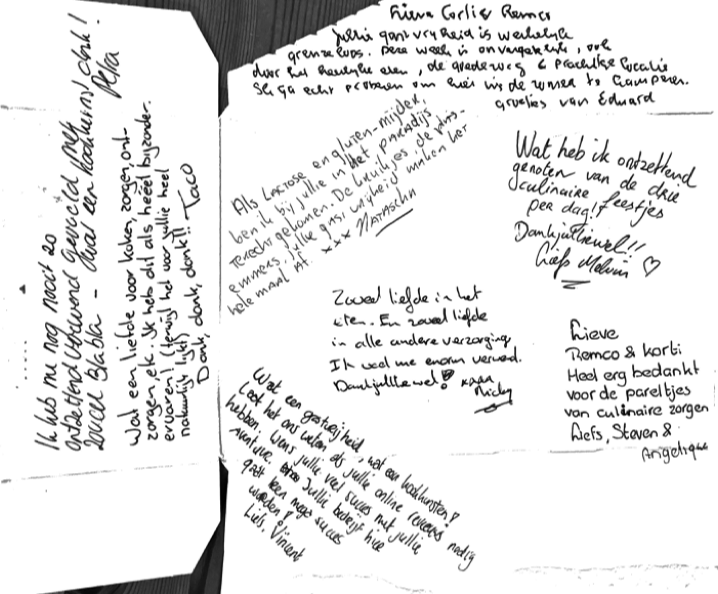 Ik heb me nog nooit zo
ontzettend verwend gevoeld met
zoveel blabla - Wat een kookkunst dank!
Petra
Wat een liefde voor koken, zorgen, ont-
zorgen, etc. Ik heb dit als heéél bijzonder
ervaren! (terwijl het voor jullie heel
natuurlijk lijkt)
Dank, dank, dank!! Taco
Lieve Corlie & Remco
Jullie gastvrijheid is werkelijk
grenzeloos. Deze week is onvergetelijk, ook
door het heerlijke eten, de goede zorg & prachtige locatie
Ik ga echt proberen om hier in de zomer te kamperen.
groetjes van Eduard
Als Lactose en gluten-mijder,
ben ik bij jullie in het paradijs
terecht gekomen. De kruikjes, de
emmers, jullie gastvrijheid maken het
helemaal af. xxx Natascha
Wat heb ik ontzettend
genoten van de drie
culinaire feestjes
per dag!!
Dankjulliewel!!
Liefs Melvin ♡
Zoveel liefde in het
eten. En zoveel liefde
in alle andere verzorging
Ik voel me enorm verwend.
Dankjulliewel! xxxx
Nicky
Lieve
Remco & Korli
Heel erg bedankt
voor de pareltjes
van culinaire zorgen
Liefs, Steven &
Angelique
Wat een gastvrijheid, wat een kookkunsten!
Laat het ons weten als jullie online reviews nodig
hebben. Wens jullie veel succes met jullie
avontuur. Jullie bedrijf hier
gaat een mega succes
worden!
Liefs, Vincent